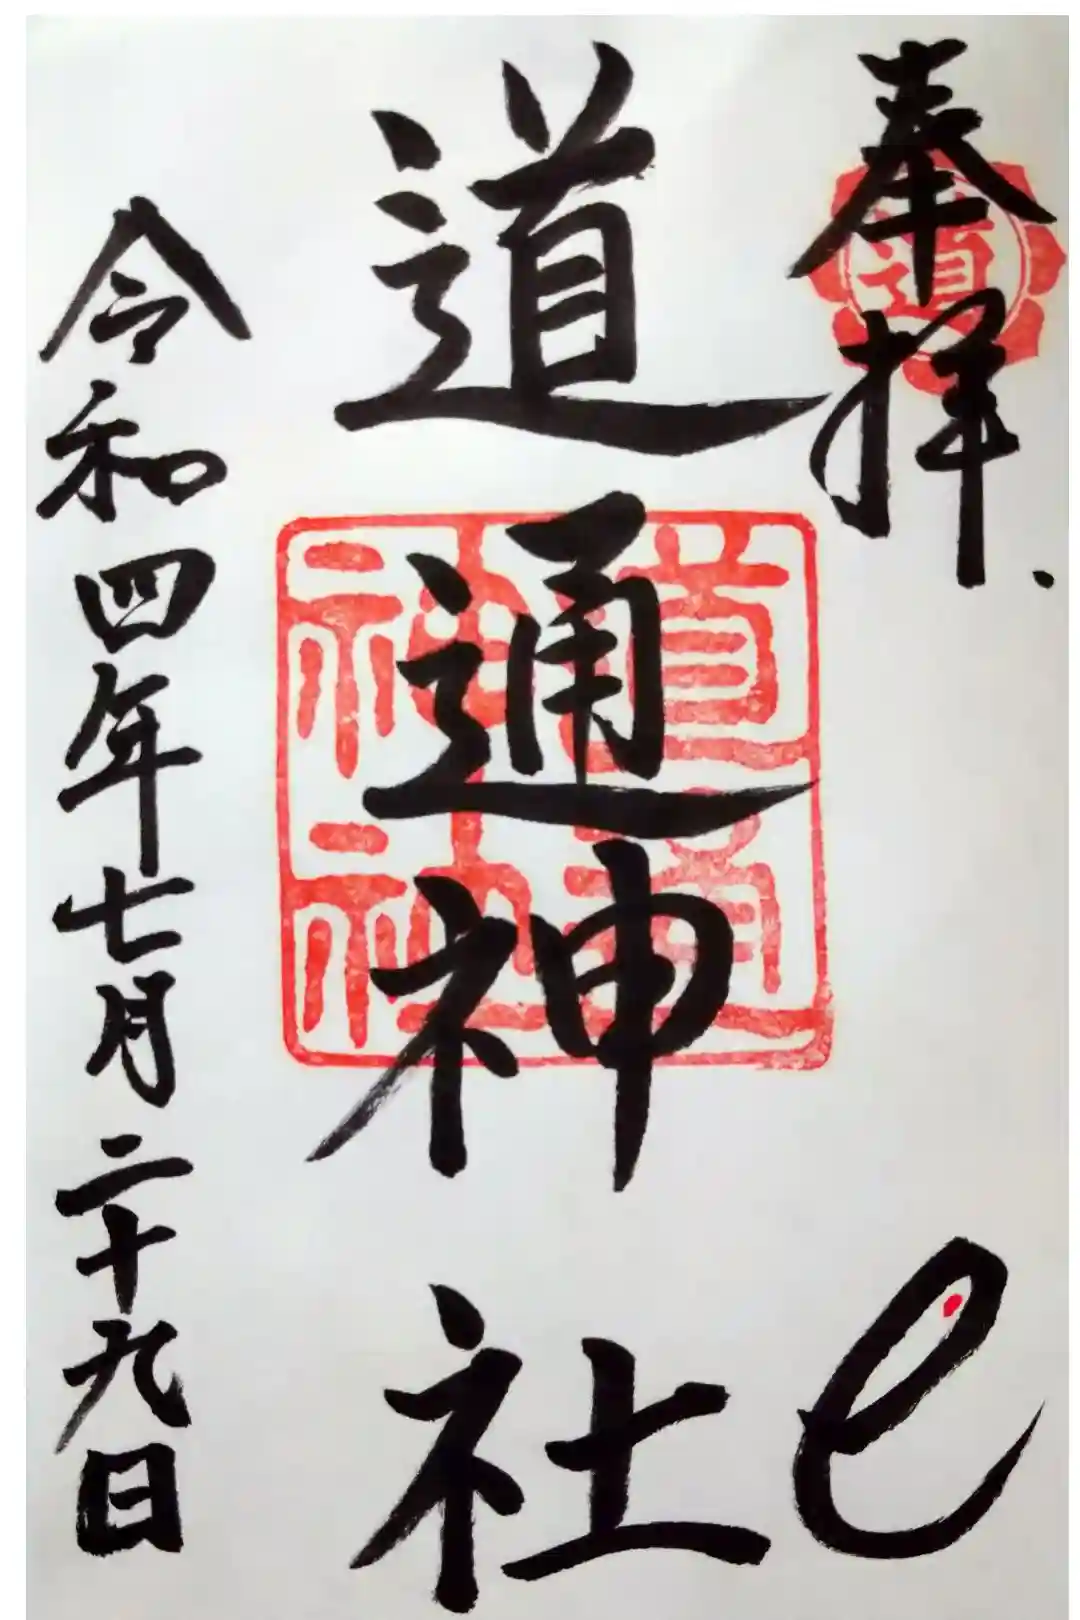 奉拝
道
巳
道通神社
道通
神社
令和四年七月二十九日